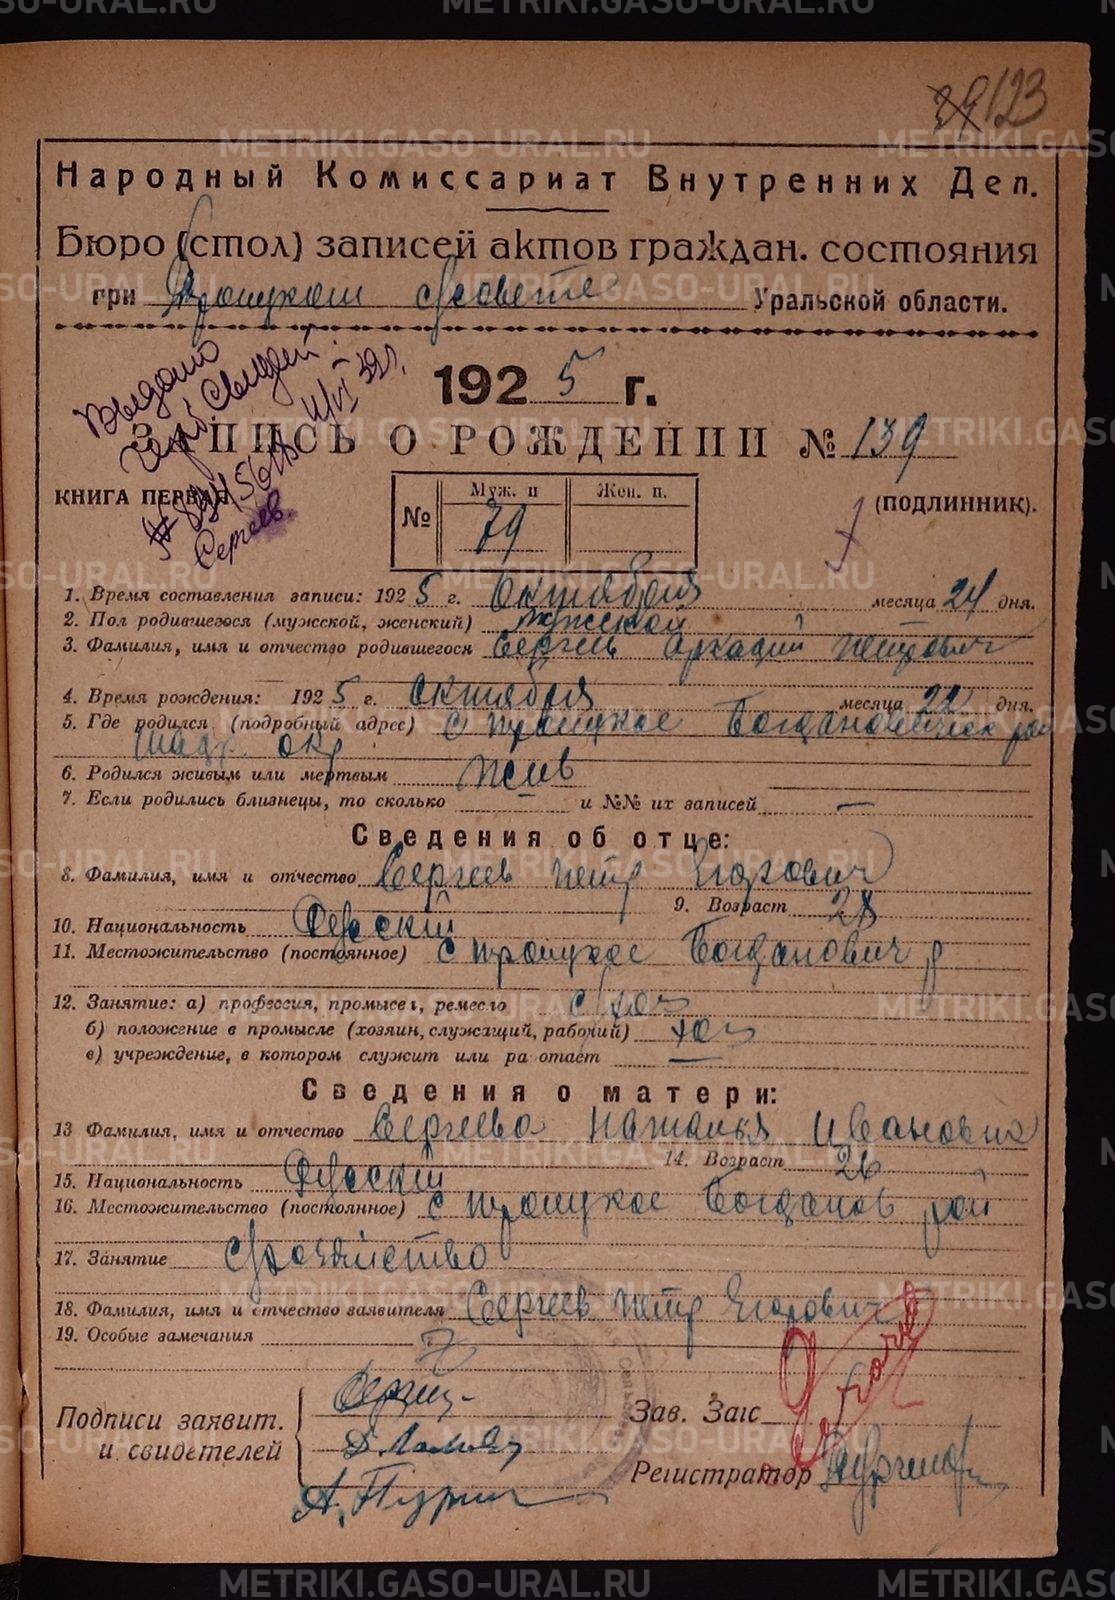 123
Народный Комиссариат Внутренних Дел.
Бюро (стол) записей актов граждан. состояния
при Троицком с/совете Уральской области.
Выдано
Свидет.
11/VI 39 г.
Сергеев.
1925 г.
ЗАПИСЬ О РОЖДЕНИИ № 139
КНИГА ПЕРВАЯ
(ПОДЛИННИК).
№ Муж. п Жен. п.
79
1. Время составления записи: 1925 г. Октября месяца 24 дня.
2. Пол родившегося (мужской, женский) Мужской
3. Фамилия, имя и отчество родившегося Сергеев Аркадий Петрович
4. Время рождения: 1925 г. Октября месяца 22 дня.
5. Где родился (подробный адрес) с Троицкое Богдановичск рай
Шадр. окр
6. Родился живым или мертвым Жив
7. Если родились близнецы, то сколько и №№ их записей —
Сведения об отце:
8. Фамилия, имя и отчество Сергеев Петр Егорович
9. Возраст 28
10. Национальность Русский
11. Местожительство (постоянное) с Троицкое Богданович р
12. Занятие: а) профессия, промысел, ремесло с/хоз
б) положение в промысле (хозяин, служащий, рабочий) хоз
в) учреждение, в котором служит или ра отает —
Сведения о матери:
13 Фамилия, имя и отчество Сергеева Наталья Ивановна
14. Возраст 26
15. Национальность Русский
16. Местожительство (постоянное) с Троицкое Богданов рай
17. Занятие с/хозяйство
18. Фамилия, имя и отчество заявителя Сергеев Петр Егорович
19. Особые замечания
Подписи заявит.
и свидетелей
Зав. Загс
Регистратор
METRIKI.GASO-URAL.RU